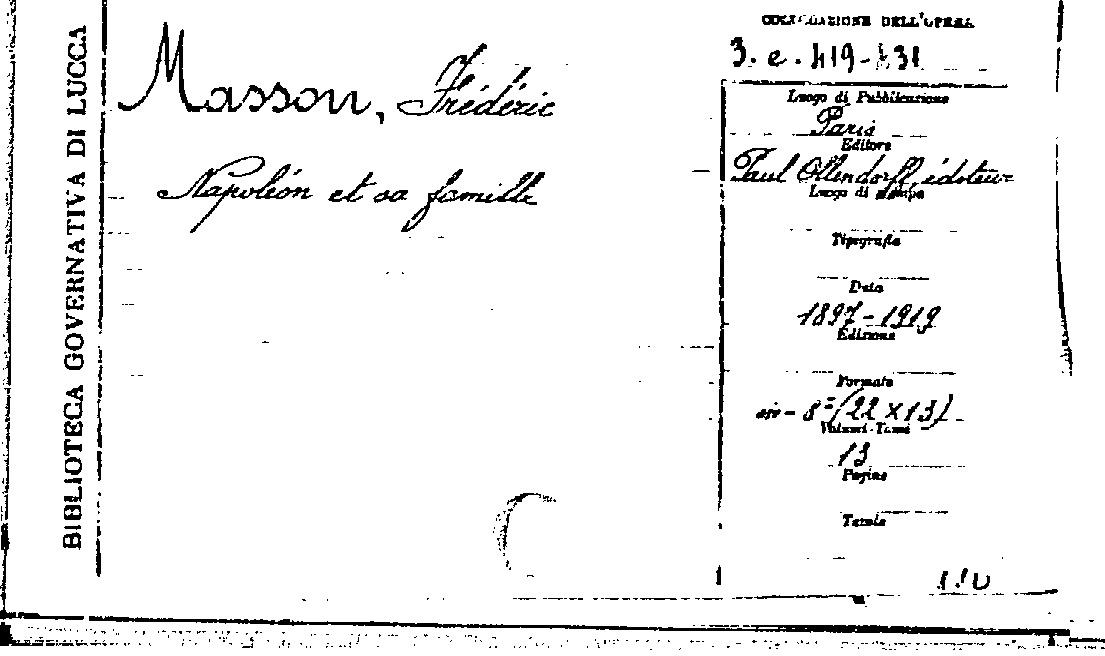 BIBLIOTECA GOVERNATIVA DI LUCCA
Masson, Frédéric
Napoléon et sa famille
COLLOCAZIONE DELL'OPERA
3. e. 419-431
Luogo di Pubblicazione
Paris
Editore
Paul Ollendorff, éditeur
Luogo di stampa
Tipografia
Data
1897-1919
Edizione
Formato
in-8º (22 x 13)
Volumi-Tomi
13
Pagine
Tavole